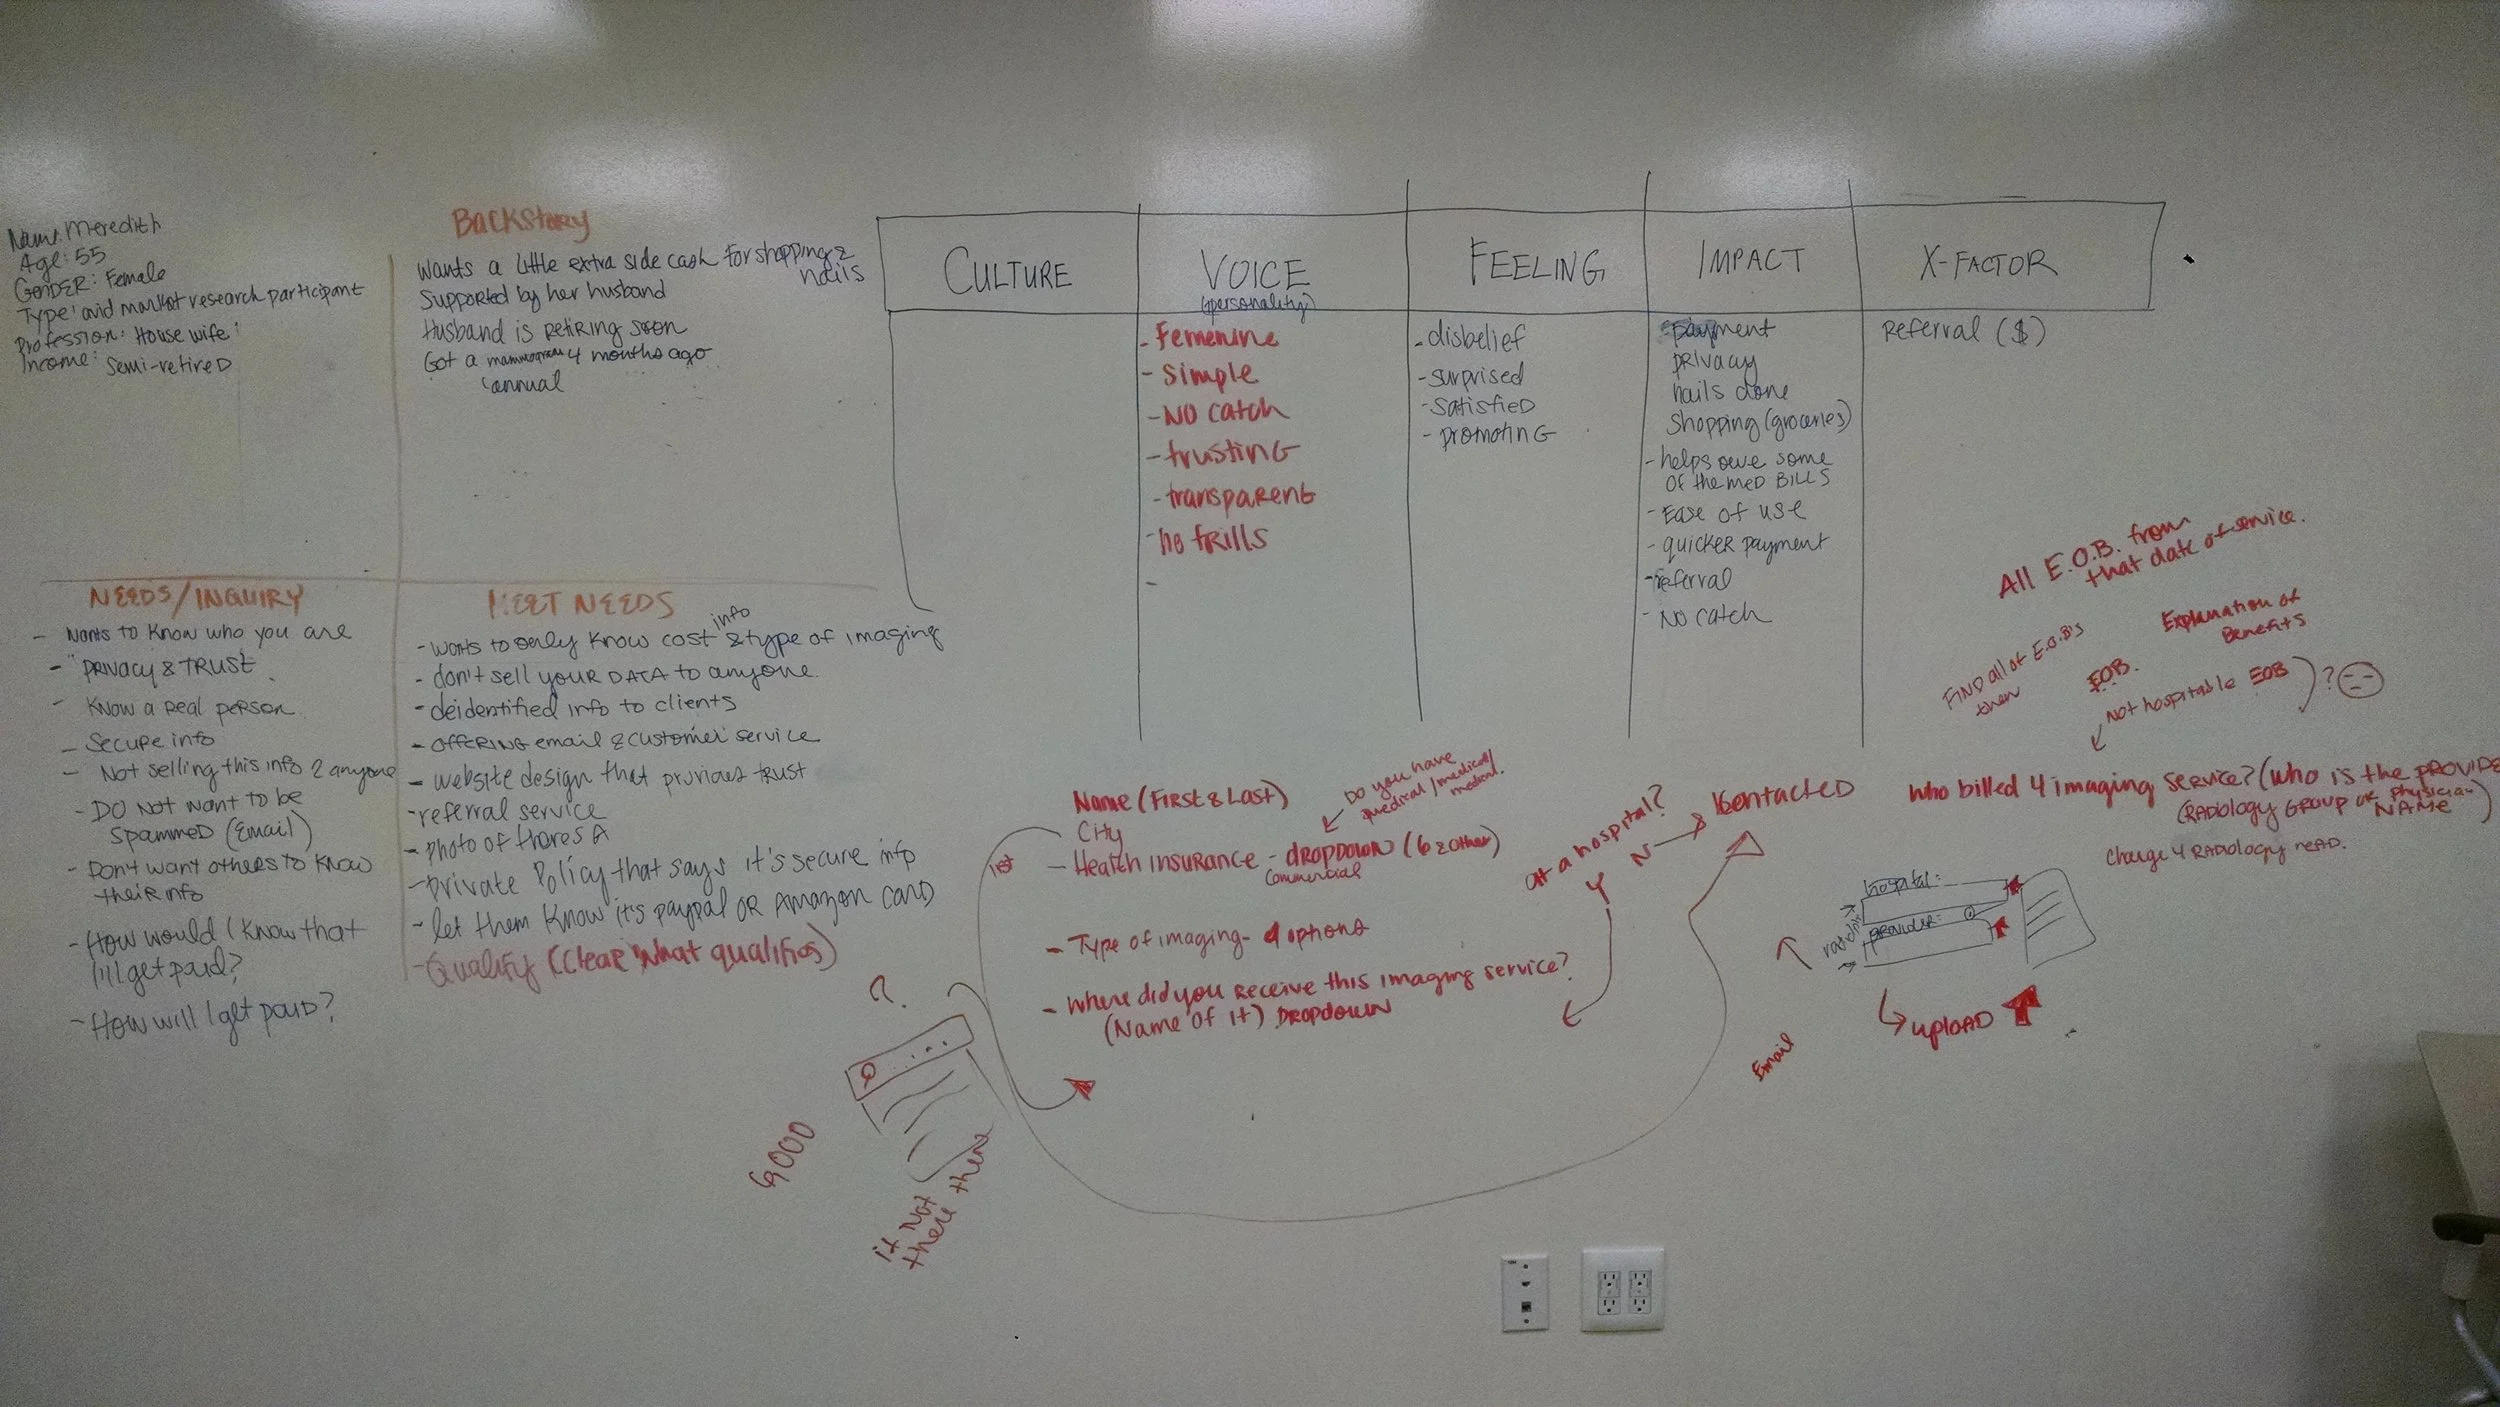 Name: Meredith
Age: 55
Gender: Female
Type: avid market research participant
Profession: House wife
Income: Semi-retired
Backstory
Wants a little extra side cash for shopping & nails
Supported by her husband
Husband is retiring soon
Got a mammogram 4 months ago
annual
NEEDS/INQUIRY
- Wants to know who you are
- PRIVACY & TRUST
- Know a real person
- Secure info
- Not selling this info 2 anyone
- DO NOT want to be
spammed (Email)
- Don't want others to know
their info
- How would I know that
I'll get paid?
- How will I get paid?
MEET NEEDS
- wants to only know cost info & type of imaging
- don't sell your DATA to anyone.
- deidentified info to clients
- OFFERING email & customer service
- website design that provides trust
- referral service
- photo of
- private policy that says it's secure info
- let them know it's paypal OR Amazon card
- Qualify (Clear what qualifies)
CULTURE
VOICE
(personality)
- Femenine
- Simple
- NO catch
- trusting
- transparent
- no frills
-
FEELING
- disbelief
- surprised
- satisfied
- promoting
IMPACT
- payment
privacy
nails done
shopping (groceries)
- helps some
of the med BILLS
- Ease of use
- quicker payment
- referral
- NO catch
X-FACTOR
Referral ($)
All E.O.B. from
that date of service.
Explanation of
Benefits
FIND all of E.O.B's
then
EOB.
Not hospitable EOB ) ?
Name (First & Last)
City
- Health insurance - dropdown (6 & other)
Commercial
Do you have
medical/medical
- Type of imaging - 4 options
- Where did you receive this imaging service?
(Name of it) Dropdown
At a hospital?
N
Y
Who billed 4 imaging service? (Who is the PROVIDE
(RADIOLOGY GROUP OR physician
NAME)
Charge 4 RADIOLOGY READ.
hospital:
PROVIDER:
UPLOAD
Email
?
GOOD
it Not
there then